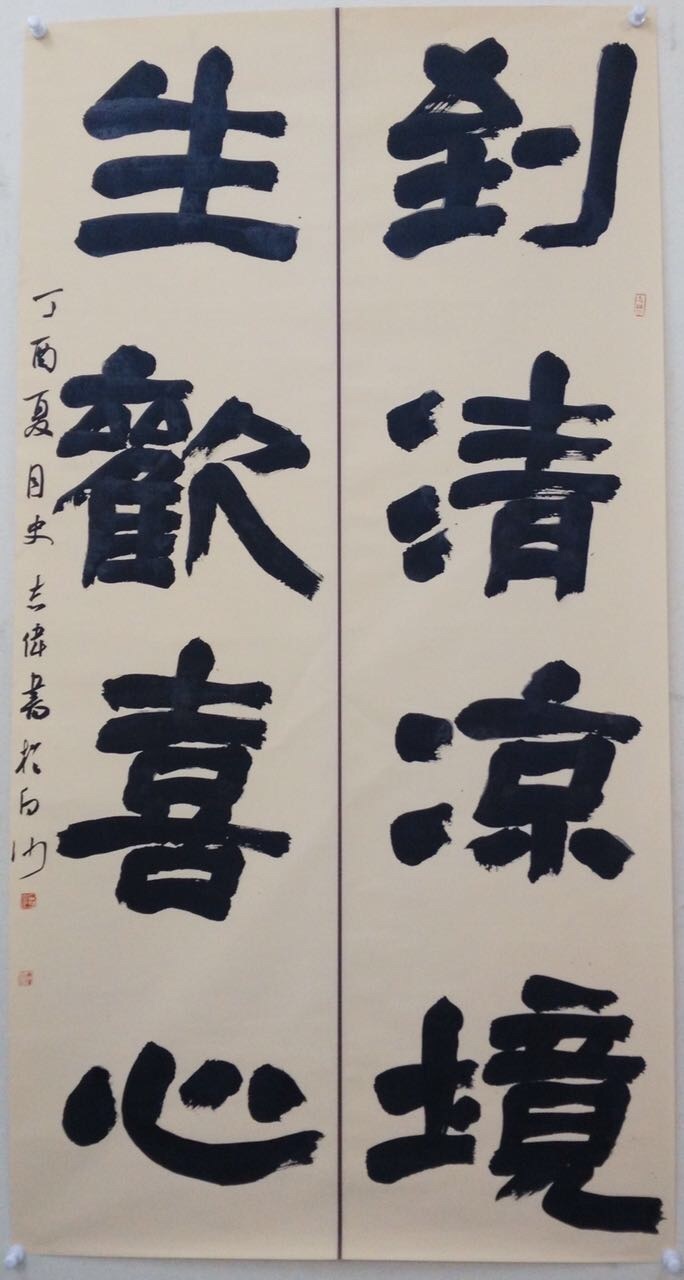 到清凉境
生歡喜心
丁酉夏月史志偉書於白沙